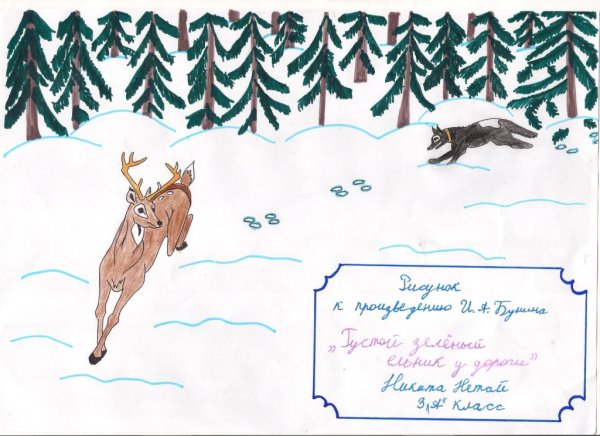 Рисунок
к произведению И. А. Бунина
„Густой зелёный
ельник у дороги"
Никита Нетой
3 „А" класс